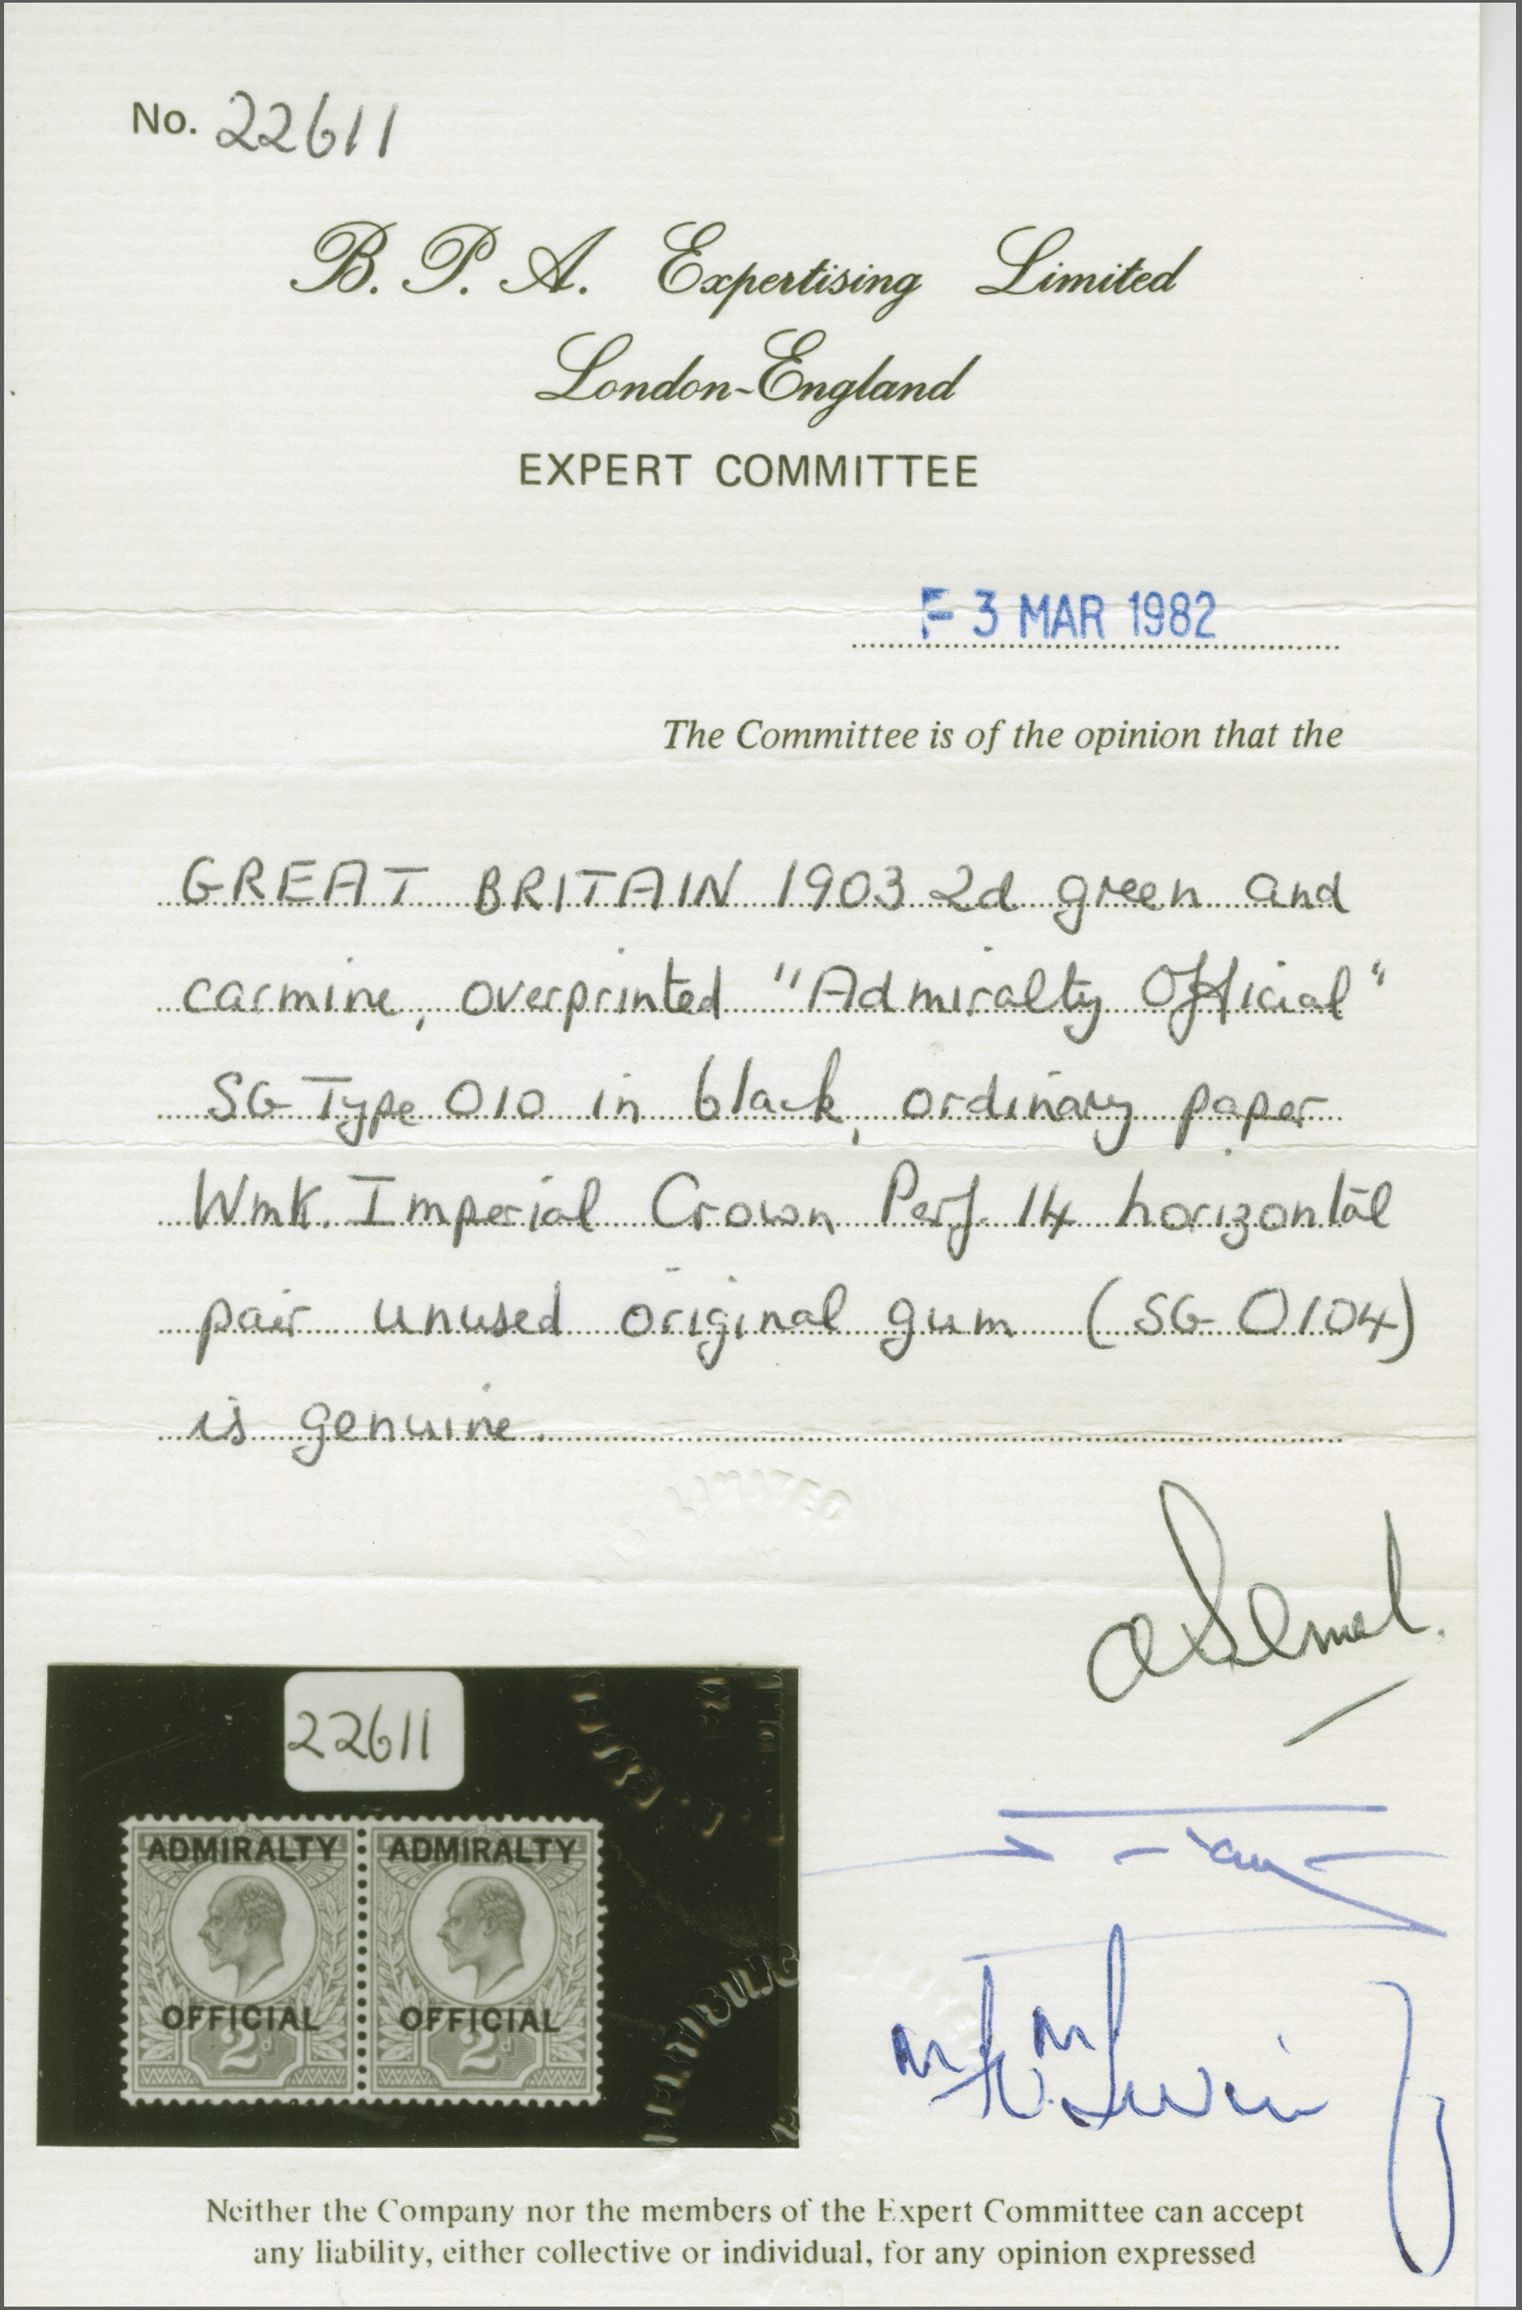 No. 22611
B. P. A. Expertising Limited
London-England
EXPERT COMMITTEE
3 MAR 1982
The Committee is of the opinion that the
GREAT BRITAIN 1903 2d green and
carmine, overprinted "Admiralty Official"
SG Type O10 in black, ordinary paper
Wmk. Imperial Crown Perf. 14 horizontal
pair unused original gum (SG O104)
is genuine.
LIMITED
22611
ADMIRALTY ADMIRALTY
OFFICIAL OFFICIAL
2d 2d
Neither the Company nor the members of the Expert Committee can accept
any liability, either collective or individual, for any opinion expressed